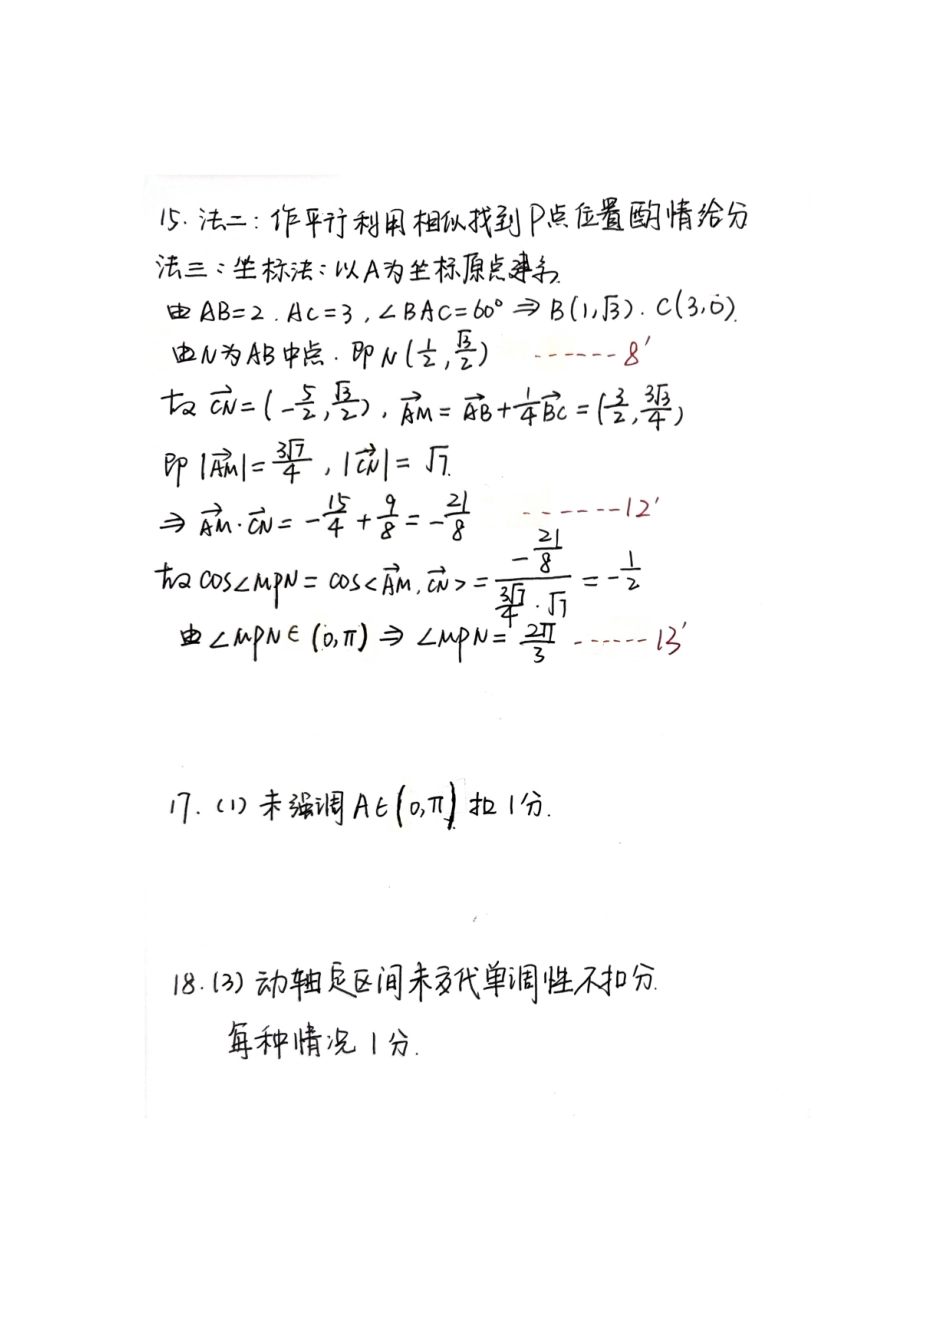 15. 法二：作平行利用相似找到P点位置酌情给分
法三：坐标法：以A为坐标原点建系
由AB=2. AC=3, ∠BAC=60° ⇒ B(1,√3). C(3,0).
由N为AB中点. 即N(1/2, √3/2) ------8'
故 CN→=(-5/2, √3/2), AM→=AB→+1/4 BC→=(3/2, 3√3/4)
即|AM→|=3√7/4, |CN→|=√7.
⇒ AM→·CN→=-15/4+9/8=-21/8 ------12'
故cos∠MPN=cos<AM→, CN→>=(-21/8)/(3√7/4·√7)=-1/2
由∠MPN∈(0,π) ⇒ ∠MPN=2π/3 ------13'
17. (1) 未强调A∈(0,π) 扣1分.
18. (3) 动轴定区间未交代单调性不扣分.
每种情况1分.